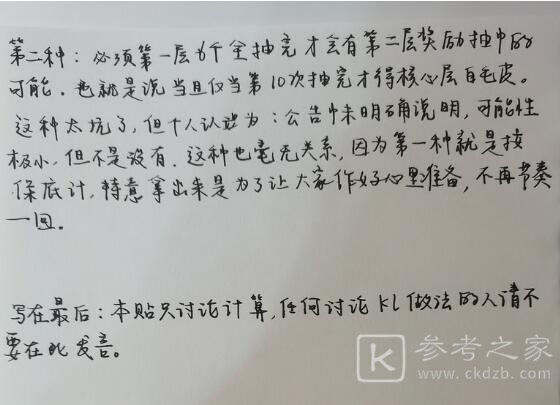 第二种：必须第一层6个全抽完才会有第二层奖励抽中的
可能。也就是说当且仅当第10次抽完才得核心层自毛皮。
这种太坑了，但个人认为：公告中未明确说明，可能性
极小，但不是没有。这种也毫无关系，因为第一种就是按
保底计，特意拿出来是为了让大家作好心里准备，不再节奏
一回。
写在最后：本贴只讨论计算，任何讨论KL做法的人请不
要在此发言。
K 参考之家
www.ckdzb.com